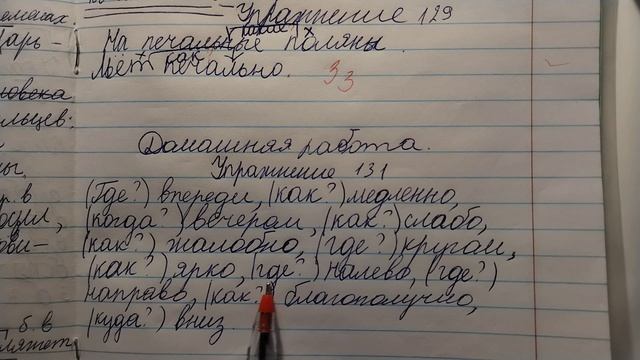 Упражнение 129
какие
На печальные поляны
как
Льёт печально.
33
Домашняя работа.
Упражнение 131
(Где?) впереди, (как?) медленно,
(когда?) вечером, (как?) слабо,
(как?) жалобно, (где?) кругом,
(как?) ярко, (где?) налево, (где?)
направо, (как?) благополучно,
(куда?) вниз.
арь-
человека
льцев:
ны,
р. в
осил,
ови-
б. в